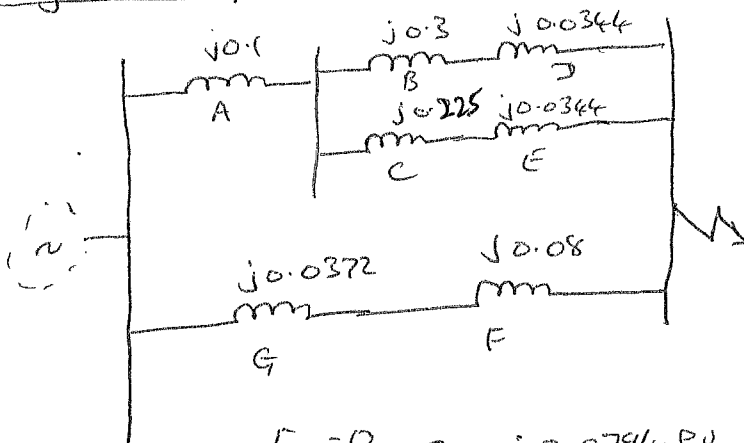 j0.1
A
j0.3
B
j0.0344
D
j0.225
C
j0.0344
E
~
j0.0372
G
j0.08
F